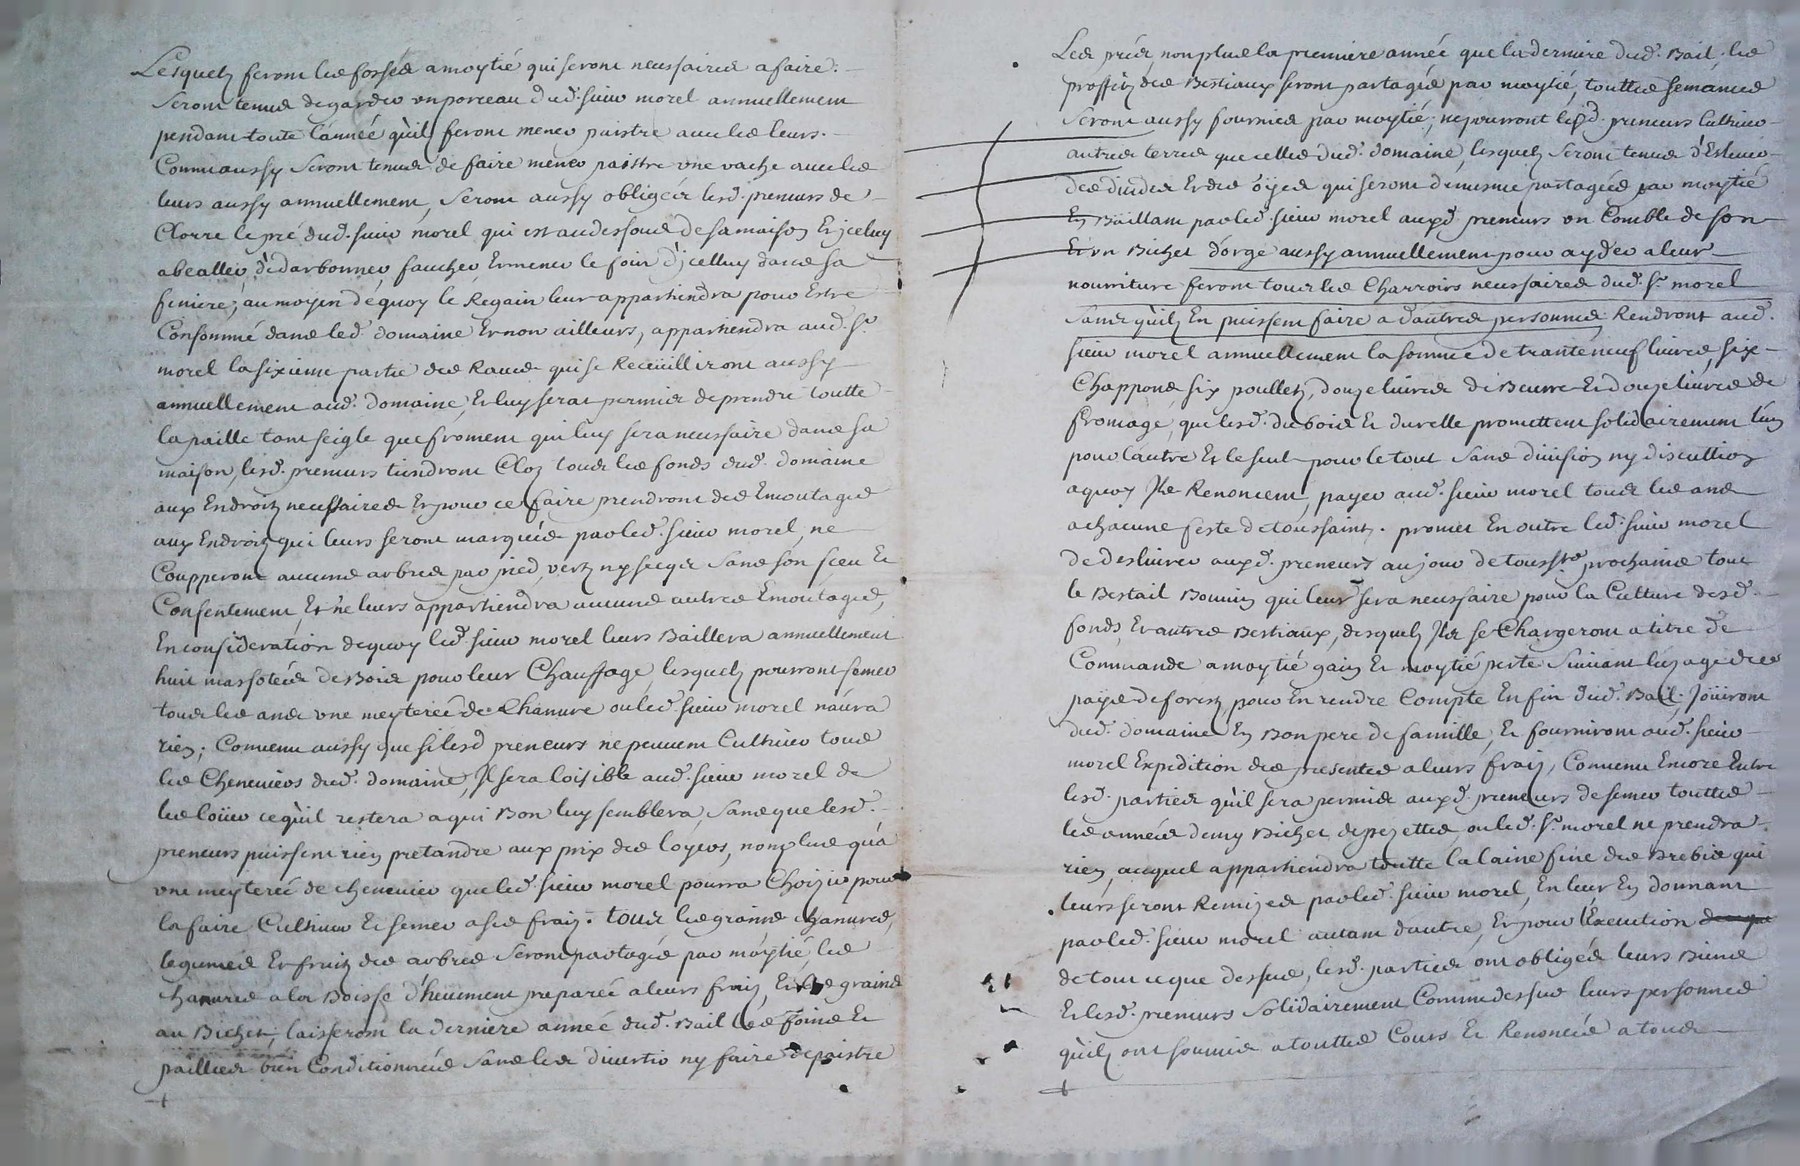 Lesquelz feront les fossés a moytié qui seront necessaires a faire.
Seront tenus de garder un porceau dud. sieur morel annuellement
pendant toute l'année qu'ilz feront mener paistre avec les leurs.
Comm'aussy seront tenus de faire mener paistre une vache avec les
leurs aussy annuellement, seront aussy obligés lesd. preneurs de
Clorre le pré dud. sieur morel qui est au dessous de sa maison Et jceluy
abealler, dédarbonner, faucher Et mener le foin d'jcelluy dans sa
feniere; au moyen de quoy le Regain leur appartiendra pour Estre
Consommé dans led. domaine Et non ailleurs, appartiendra aud. sr.
morel la sixieme partie des Raves qui se Receuilliront aussy
annuellement aud. domaine, Et luy sera permis de prendre toutte
la paille tant seigle que froment qui luy sera necessaire dans sa
maison, lesd. preneurs tiendront Cloz tous les fonds dud. domaine
aux Endroitz necessaires Et pour ce faire prendront des Emoutages
aux Endroitz qui leurs seront marqués par led. sieur morel, ne
Coupperont aucuns arbres par pied, vertz ny secqs sans son sceu Et
Consentement, Et ne leurs appartiendra aucuns autres Emoutages,
En consideration de quoy led. sieur morel leurs Baillera annuellement
huit massotées de Bois pour leur Chauffage, lesquelz pourront semer
tous les ans une meyterée de Chanvre ou led. sieur morel n'aura
rien; Convenu aussy que si lesd preneurs ne peuvent Cultiver tous
les Cheneviers dud. domaine, Jl sera loisible aud. sieur morel de
les loüer ce qu'il restera a qui Bon luy semblera, sans que lesd.
preneurs puissent rien pretandre aux prix des loyers, non plus qu'a
une meyterée de chenevier que led. sieur morel pourra Choizir pour
la faire Cultiver Et semer a ses fraiz. tous les grains, chanvres,
legumes Et fruitz des arbres seront partagés par moytié, les
chanvres a la Boisse d'heument preparée a leurs fraiz, Et les grains
au Bichet, laisseront la derniere année dud. Bail les foins Et
pailles bien Conditionnés sans les divertir ny faire depaistre
Les prés, non plus la premiere année que la derniere dud. Bail, les
proffitz des Bestiaux seront partagés par moytié, touttes semances
seront aussy fournies par moytié; ne pourront lesd. preneurs Cultiver
autres terres que celles dud. domaine, lesquelz seront tenus d'Eslever
des dindes Et des öyes qui seront de mesme partagées par moytié
En Baillant par led. sieur morel auxd. preneurs un Comble de son
Et un Bichet d'orge aussy annuellement pour ayder a leur
nourriture feront tous les Charroirs necessaires dud. sr. morel
sans qu'ilz En puissent faire a d'autres personnes Rendront aud.
sieur morel annuellement la somme de trante neuf livres, six
Chappons, six poulletz, douze livres de Beurre Et douze livres de
fromage, que lesd. dubois Et durelle promettent solidairement l'un
pour l'autre Et le seul pour le tout sans division ny discution
a quoy Jls Renoncent, payer aud. sieur morel tous les ans
a chacune feste de toussaintz. promet En outre led. sieur morel
de deslivrer auxd. preneurs au jour de toussts prochains tout
le Bestail Bouvin qui leur sera necessaire pour la Culture desd.
fonds Et autres Bestiaux, desquelz Jls se Chargeront a titre de
Commande a moytié gain Et moytié perte suivant l'uzage des
païs de forestz pour En rendre Compte En fin dud. Bail; Joüiront
dud. domaine En Bon pere de famille, Et fourniront aud. sieur
morel Expedition des presentes a leurs fraiz, Convenu Encore Entre
lesd. parties qu'il sera permis auxd. preneurs de semer touttes
les années demy Bichet de pezettes ou led. sr. morel ne prendra
rien, auquel appartiendra toutte la laine fine des Brebis qui
leurs seront Remizes par led. sieur morel, En leur En donnant
par led. sieur morel autant d'autre, Et pour l'Execution
de tout ce que dessus, lesd. parties ont obligés leurs Biens
Et lesd. preneurs solidairement Comme dessus leurs personnes
qu'ilz ont soumis a touttes Cours Et Renoncés a tous